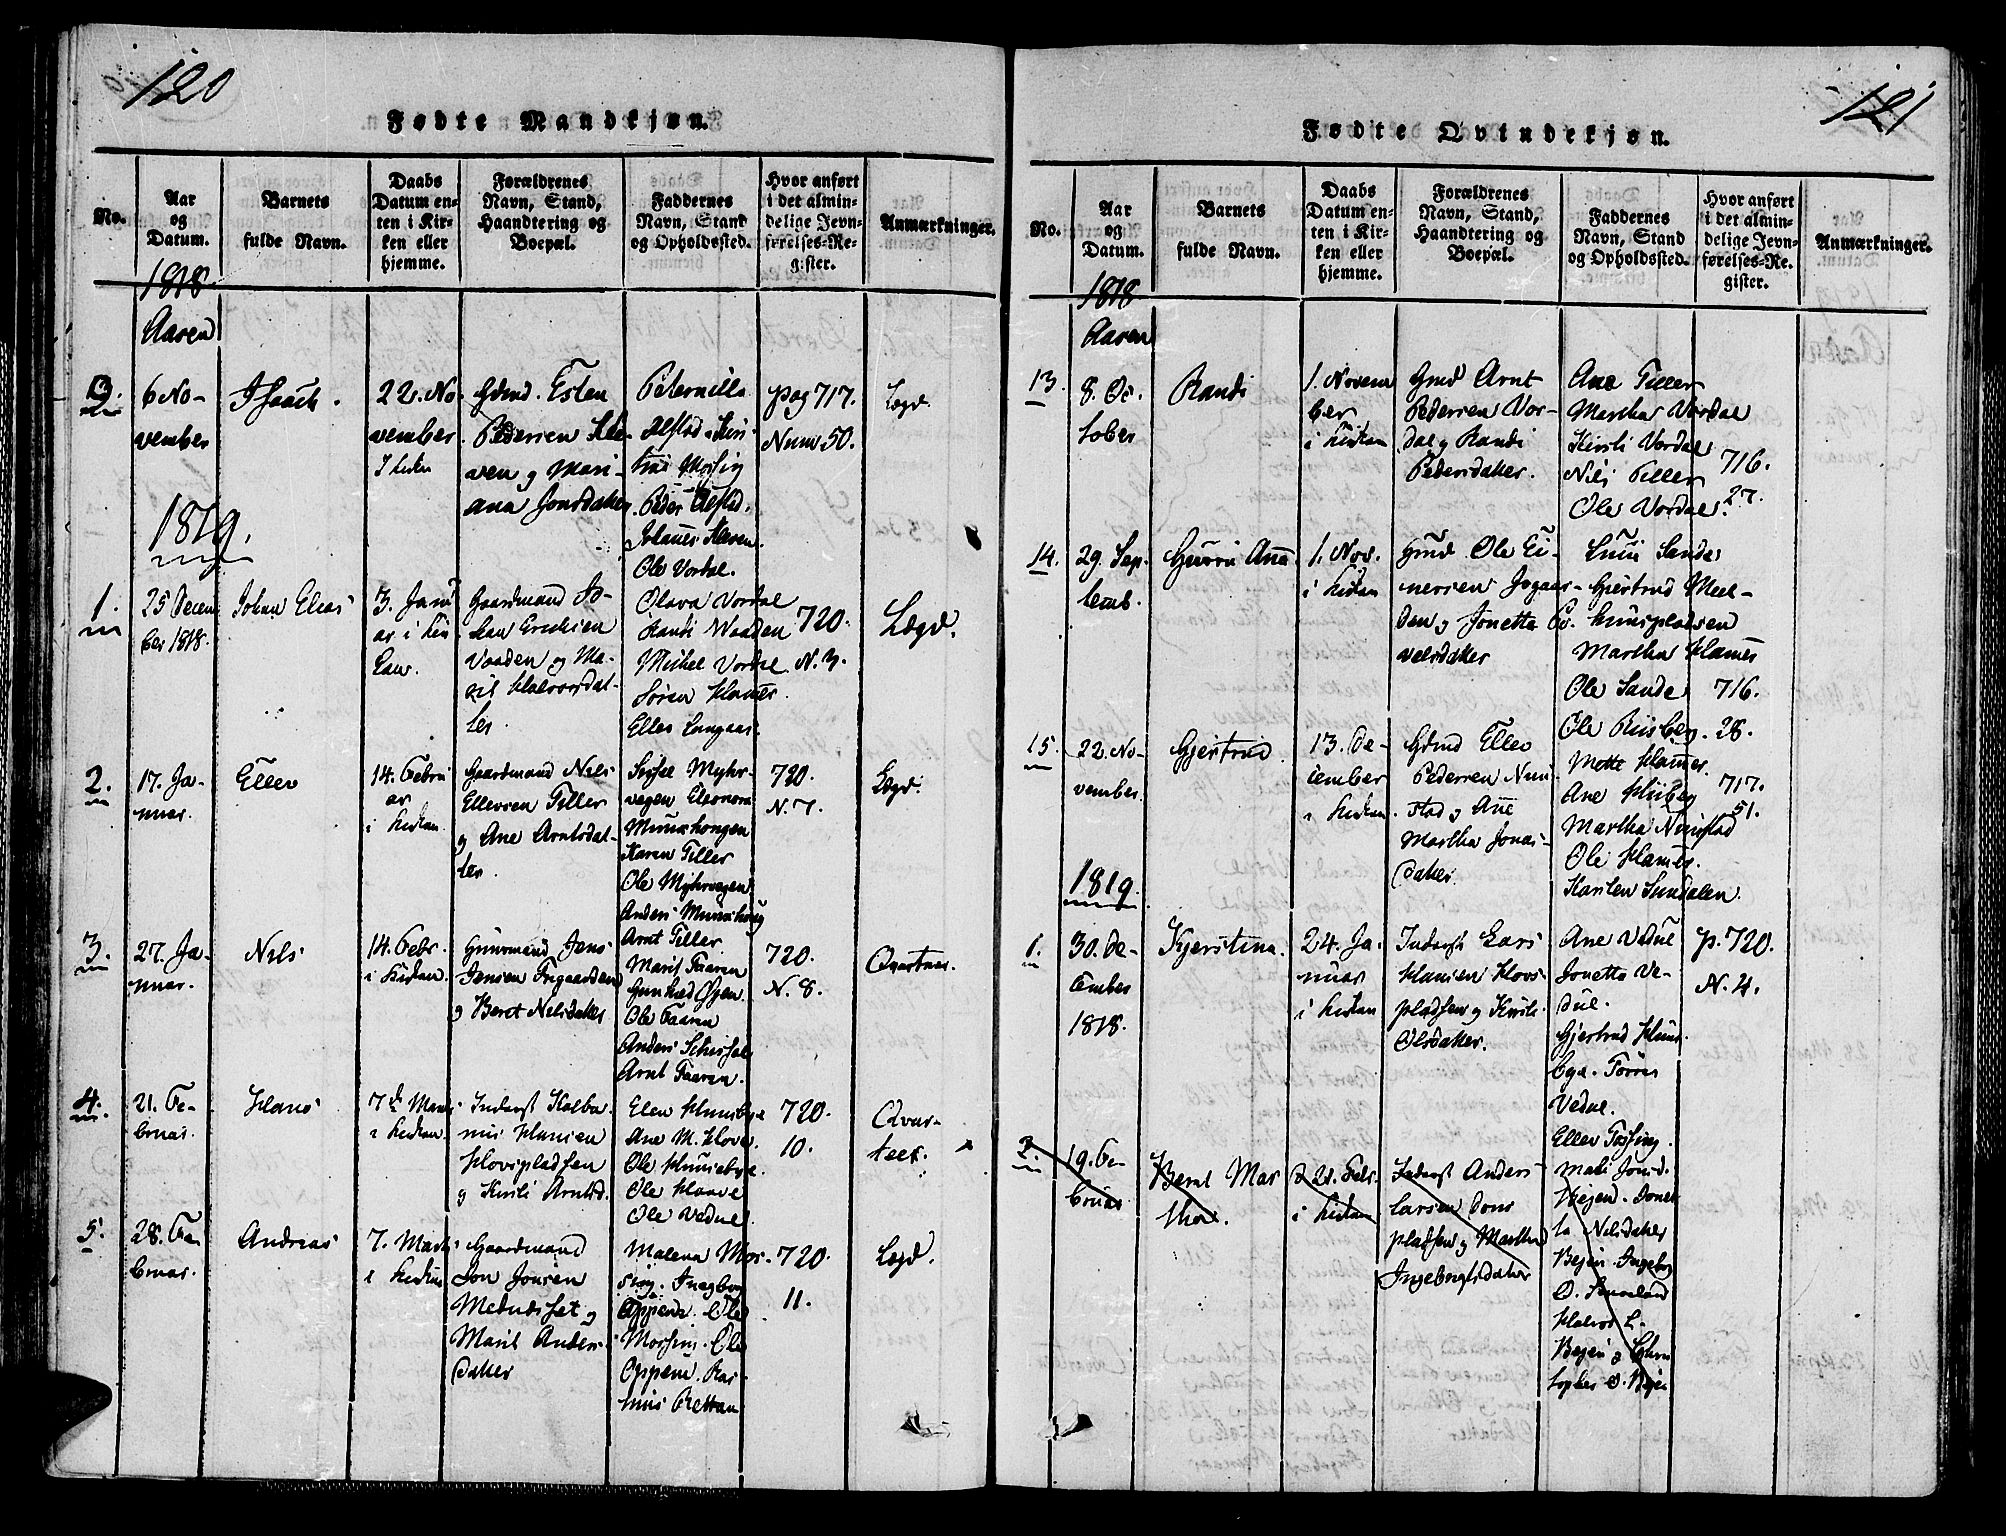 120
Fødte Mandkjøn.
No.
Aar
og
Datum.
Barnets
fulde Navn.
Daabs
Datum en-
ten i Kir-
ken eller
hjemme.
Forældrenes
Navn, Stand,
Haandtering og
Boepæl.
Faddernes
Navn, Stand
og Opholdssted.
Hvor anført
i det almin-
delige Jevn-
førelses-Re-
gister.
Anmærkninger.
1818
Aaren
9.
6 No-
vember
Isaach.
22. No-
vember
I Kirken
Gdmd. Esten
Pedersen Kle-
ven og Mari-
ana Jonsdatter
Peternille
Alstad. Kir-
stine Mossing
Peder Alstad.
Johannes Kleven.
Ole Vordal.
pag 717.
Num 50.
Lægd.
1819.
1.
25 Decem
ber 1818.
Johan Elias
3. Janu
ar i Kir
ken.
Gaardmand Jo-
han Erichsen
Vaaden og Ma-
rit Halvorsdat-
ter.
Olava Vordal
Randi Waaden
Michel Vordal
Sören Hamer
Elles
720.
N. 3.
Lægd.
2.
17. Ja-
nuar.
Ellev
14. Febru
ar
i Kirken.
Gaardmand Nils
Ellevsen Tiller
og Ane Arntsdat-
ter.
Sissel Myhr-
vegen Eleonora
Muushougen
Karen Tiller
Ole Myhrvegen
Anders Muushoug
Arnt Tiller
720.
N. 7.
Lægd.
3.
27. Ja-
nuar.
Nils
14. Febr.
i Kirken.
Huusmand Jens
Jensen
og Beret Nilsdatter
Marit Faaren
Gunhild Øyen.
Ole Faaren
Anders
Arnt Faaren.
720.
N. 8.
Qvarteer.
4.
21. Fe-
bruar.
Hans
7de Marts
i Kirken.
Inderst Kolbe-
nus Hansen
Hovspladsen
og Kirsti Arntsd.
Elen Huusbye
Ane M. Hove.
Ole Huusebye.
Ole Haave
Ole Vedul
720.
10.
Qvar-
teer.
5.
28. Fe-
bruar.
Andreas
7. Marts
i Kirken
Gaardmand
Jon Jonsen
og
Marit Anders-
datter
Malena Mos-
sing. Ingebor
Oppem. Ole
Mossing. Ole
Oppem. Ras-
mus Brettan
720.
11.
Lægd.
121
Fødte Qvindekjøn.
No.
Aar
og
Datum.
Barnets
fulde Navn.
Daabs
Datum en-
ten i Kir-
ken eller
hjemme.
Forældrenes
Navn, Stand,
Haandtering og
Boepæl.
Faddernes
Navn, Stand
og Opholdssted.
Hvor anført
i det almin-
delige Jevn-
førelses-Re-
gister.
Anmærkninger.
1818
Aaren
13.
8. Oc-
tober
Randi
1. Novem
ber
i Kirken
Gmd Arnt
Pedersen Vor-
dal og Randi
Pedersdatter.
Ane Tiller
Martha Vordal
Kirsti Vordal
Nils Tiller
Ole Vordal.
716.
27.
14.
29. Sep-
temb.
Gurru Ana
1. Nov.
i Kirken
Gmd Ole Ei-
nersen
den og Jonetta
velsdatter
Sande
Gjertrud Meel-
huuspladsen
Martha Hamer
Ole Sande
Ole Riisberg.
716.
28.
15.
22. No-
vember.
Gjertrud
13. De-
cember
i Kirken.
Gdmd Ellev
Pedersen Nuu-
stad og Ane
Martha Jonas-
datter.
Mette Hamer.
Ane Huseby
Martha Nuustad
Ole Hamer.
Karsten Sundalen.
717.
51.
1819.
1.
30. De-
cember
1818.
Kjerstina.
24. Ja-
nuar
i Kirken
Inderst Lars
Hansen Hovs-
pladsen og Kirsti
Olsdatter.
Ane Vedul
Jonetta Ve-
dul.
Gjertrud Huus-
bye. Törres
Vedul.
Ellev Tossing.
p. 720.
N. 4.
2.
19. Fe-
bruar
Beret Mar
tha.
d 21. Febr.
i Kirken
Inderst Anders
Larsen Dons
pladsen og Martha
Ingebrigtsdatter
Mali Jonsd.
Bejen. Jonet
ta Nilsdatter
Bejen. Ingeborg
O.
Halvor L.
Bejen og Chris
topher O. Bejen